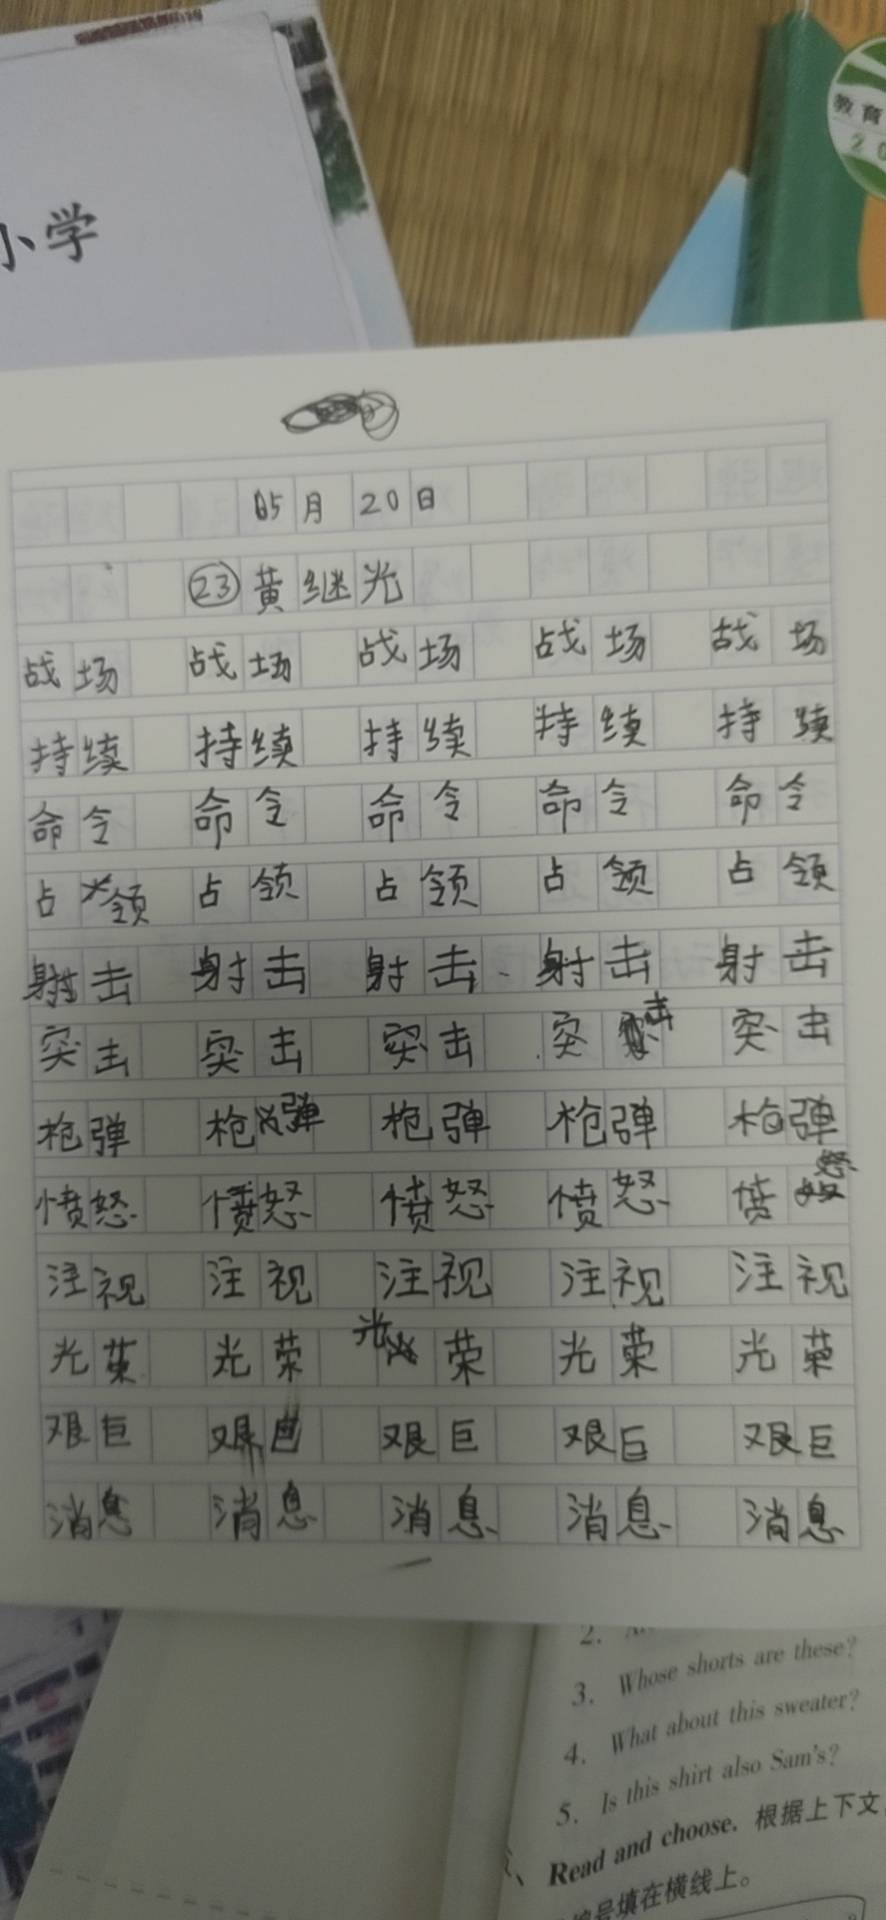 小学
教育
05月20日
㉓黄继光
战场 战场 战场 战场 战场
持续 持续 持续 持续 持续
命令 命令 命令 命令 命令
占领 占领 占领 占领 占领
射击 射击 射击 射击 射击
突击 突击 突击 突击 突击
枪弹 枪弹 枪弹 枪弹 枪弹
愤怒 愤怒 愤怒 愤怒 愤怒
注视 注视 注视 注视 注视
光荣 光荣 光荣 光荣 光荣
艰巨 艰巨 艰巨 艰巨 艰巨
消息 消息 消息 消息 消息
2.
3. Whose shorts are these?
4. What about this sweater?
5. Is this shirt also Sam's?
Read and choose. 根据上下文
号填在横线上。